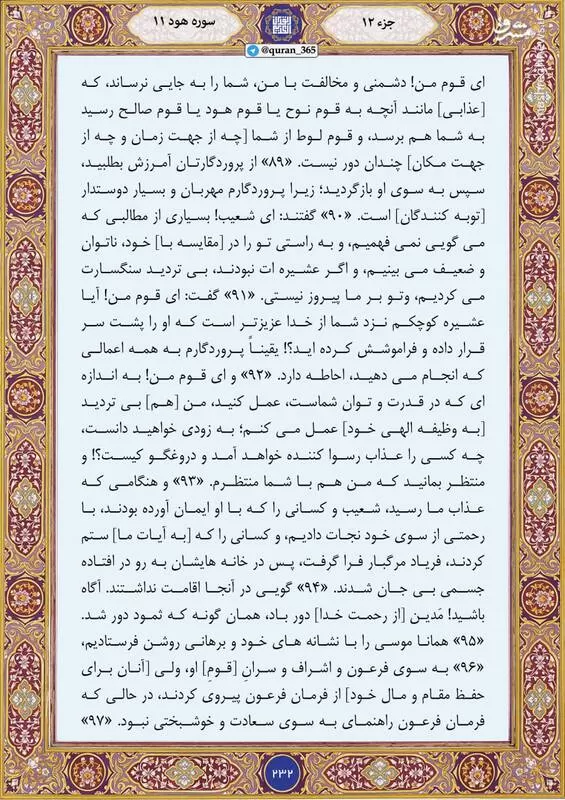 جزء ۱۲
سوره هود ۱۱
@quran_365
ای قوم من! دشمنی و مخالفت با من، شما را به جایی نرساند، که
[عذابی] مانند آنچه به قوم نوح یا قوم هود یا قوم صالح رسید
به شما هم برسد، و قوم لوط از شما [چه از جهت زمان و چه از
جهت مکان] چندان دور نیست. «۸۹» از پروردگارتان آمرزش بطلبید،
سپس به سوی او بازگردید؛ زیرا پروردگارم مهربان و بسیار دوستدار
[توبه کنندگان] است. «۹۰» گفتند: ای شعیب! بسیاری از مطالبی که
می گویی نمی فهمیم، و به راستی تو را در [مقایسه با] خود، ناتوان
و ضعیف می بینیم، و اگر عشیره ات نبودند، بی تردید سنگسارت
می کردیم، وتو بر ما پیروز نیستی. «۹۱» گفت: ای قوم من! آیا
عشیره کوچکم نزد شما از خدا عزیزتر است که او را پشت سر
قرار داده و فراموشش کرده اید؟! یقیناً پروردگارم به همه اعمالی
که انجام می دهید، احاطه دارد. «۹۲» و ای قوم من! به اندازه
ای که در قدرت و توان شماست، عمل کنید، من [هم] بی تردید
[به وظیفه الهی خود] عمل می کنم؛ به زودی خواهید دانست،
چه کسی را عذاب رسوا کننده خواهد آمد و دروغگو کیست؟! و
منتظر بمانید که من هم با شما منتظرم. «۹۳» و هنگامی که
عذاب ما رسید، شعیب و کسانی را که با او ایمان آورده بودند، با
رحمتی از سوی خود نجات دادیم، و کسانی را که [به آیات ما] ستم
کردند، فریاد مرگبار فرا گرفت، پس در خانه هایشان به رو در افتاده
جسمی بی جان شدند. «۹۴» گویی در آنجا اقامت نداشتند. آگاه
باشید! مَدین [از رحمت خدا] دور باد، همان گونه که ثمود دور شد.
«۹۵» همانا موسی را با نشانه های خود و برهانی روشن فرستادیم،
«۹۶» به سوی فرعون و اشراف و سرانِ [قومِ] او، ولی [آنان برای
حفظ مقام و مال خود] از فرمان فرعون پیروی کردند، در حالی که
فرمان فرعون راهنمای به سوی سعادت و خوشبختی نبود. «۹۷»
۲۳۲